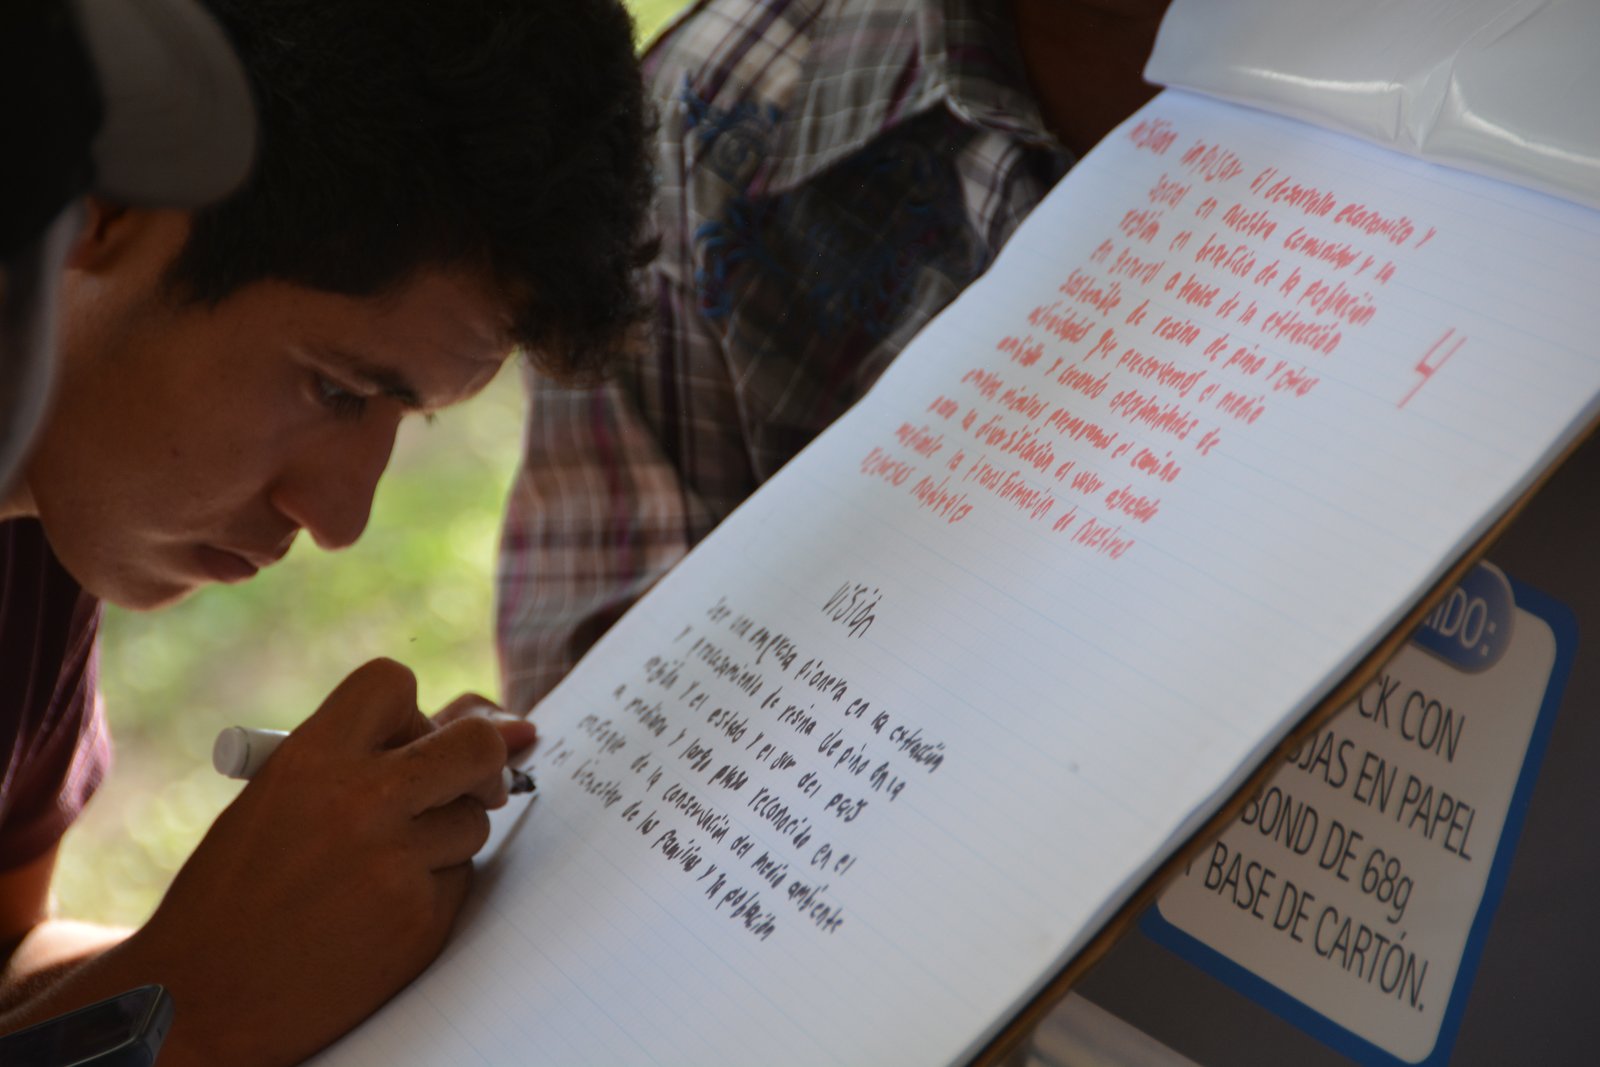 Misión impulsar el desarrollo economico y
social en nuestra comunidad y la
región en beneficio de la población
en general a travez de la extracción
sostenible de resina de pino y otras
actividades que preservemos el medio
ambiente y creando oportunidades de
empleo, mientras preparamos el camino
para la diversificación el valor agregado
mediante la transformación de nuestros
recursos naturales
4
Visión
Ser una empresa pionera en la extracción
y procesamiento de resina de pino en la
región y el estado y el sur del pais
a mediano y largo plazo reconocido en el
enfoque de la conservación del medio ambiente
y el bienestar de las familias y la población
IDO:
CK CON
JAS EN PAPEL
BOND DE 68g
Y BASE DE CARTÓN.